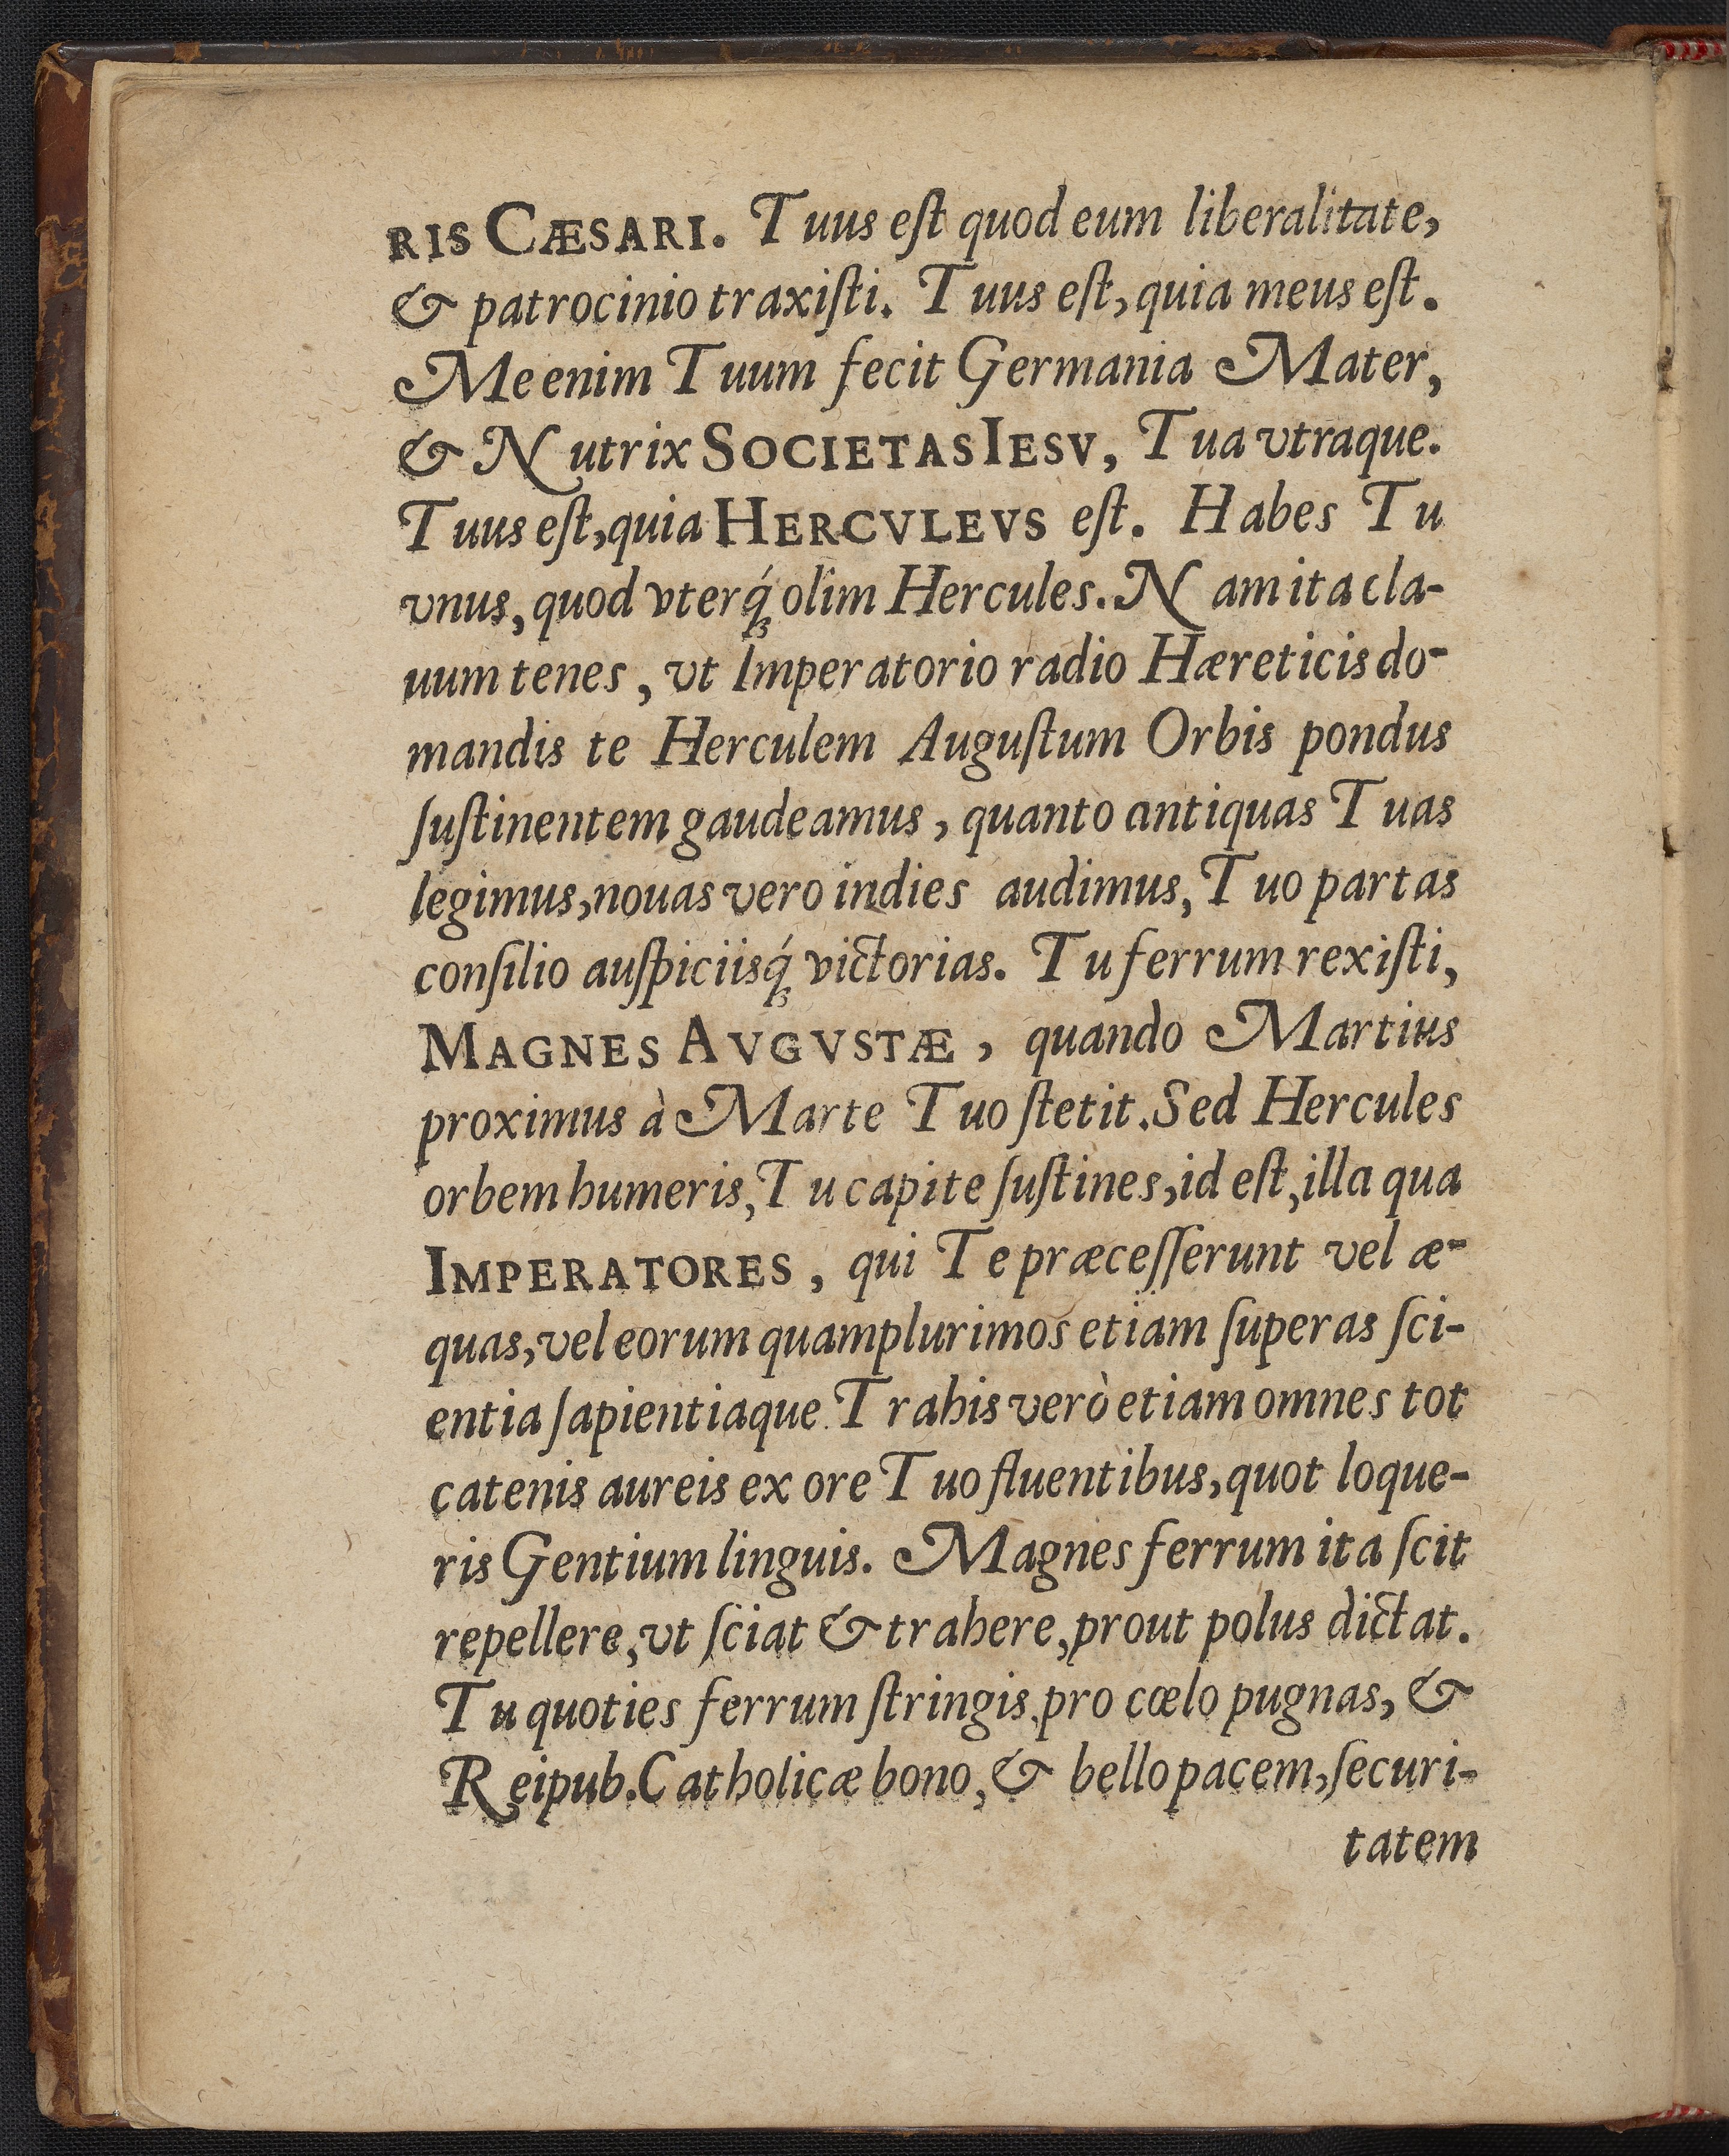 RIS CÆSARI. Tuus eſt quod eum liberalitate,
& patrocinio traxiſti. Tuus eſt, quia meus eſt.
Me enim Tuum fecit Germania Mater,
& Nutrix SOCIETAS IESV, Tua vtraque.
Tuus eſt, quia HERCVLEVS eſt. Habes Tu
vnus, quod vterq́ꝫ olim Hercules. Nam ita cla-
uum tenes, vt Imperatorio radio Hæreticis do-
mandis te Herculem Auguſtum Orbis pondus
ſuſtinentem gaudeamus, quanto antiquas Tuas
legimus, nouas vero indies audimus, Tuo partas
conſilio auſpiciisq́ꝫ victorias. Tu ferrum rexiſti,
MAGNES AVGVSTÆ, quando Martius
proximus à Marte Tuo ſtetit. Sed Hercules
orbem humeris, Tu capite ſuſtines, id eſt, illa qua
IMPERATORES, qui Te præceſſerunt vel æ-
quas, vel eorum quamplurimos etiam ſuperas ſci-
entia ſapientiaque. Trahis verò etiam omnes tot
catenis aureis ex ore Tuo fluentibus, quot loque-
ris Gentium linguis. Magnes ferrum ita ſcit
repellere, vt ſciat & trahere, prout polus dictat.
Tu quoties ferrum ſtringis, pro cœlo pugnas, &
Reipub. Catholicæ bono, & bello pacem, ſecuri-
tatem